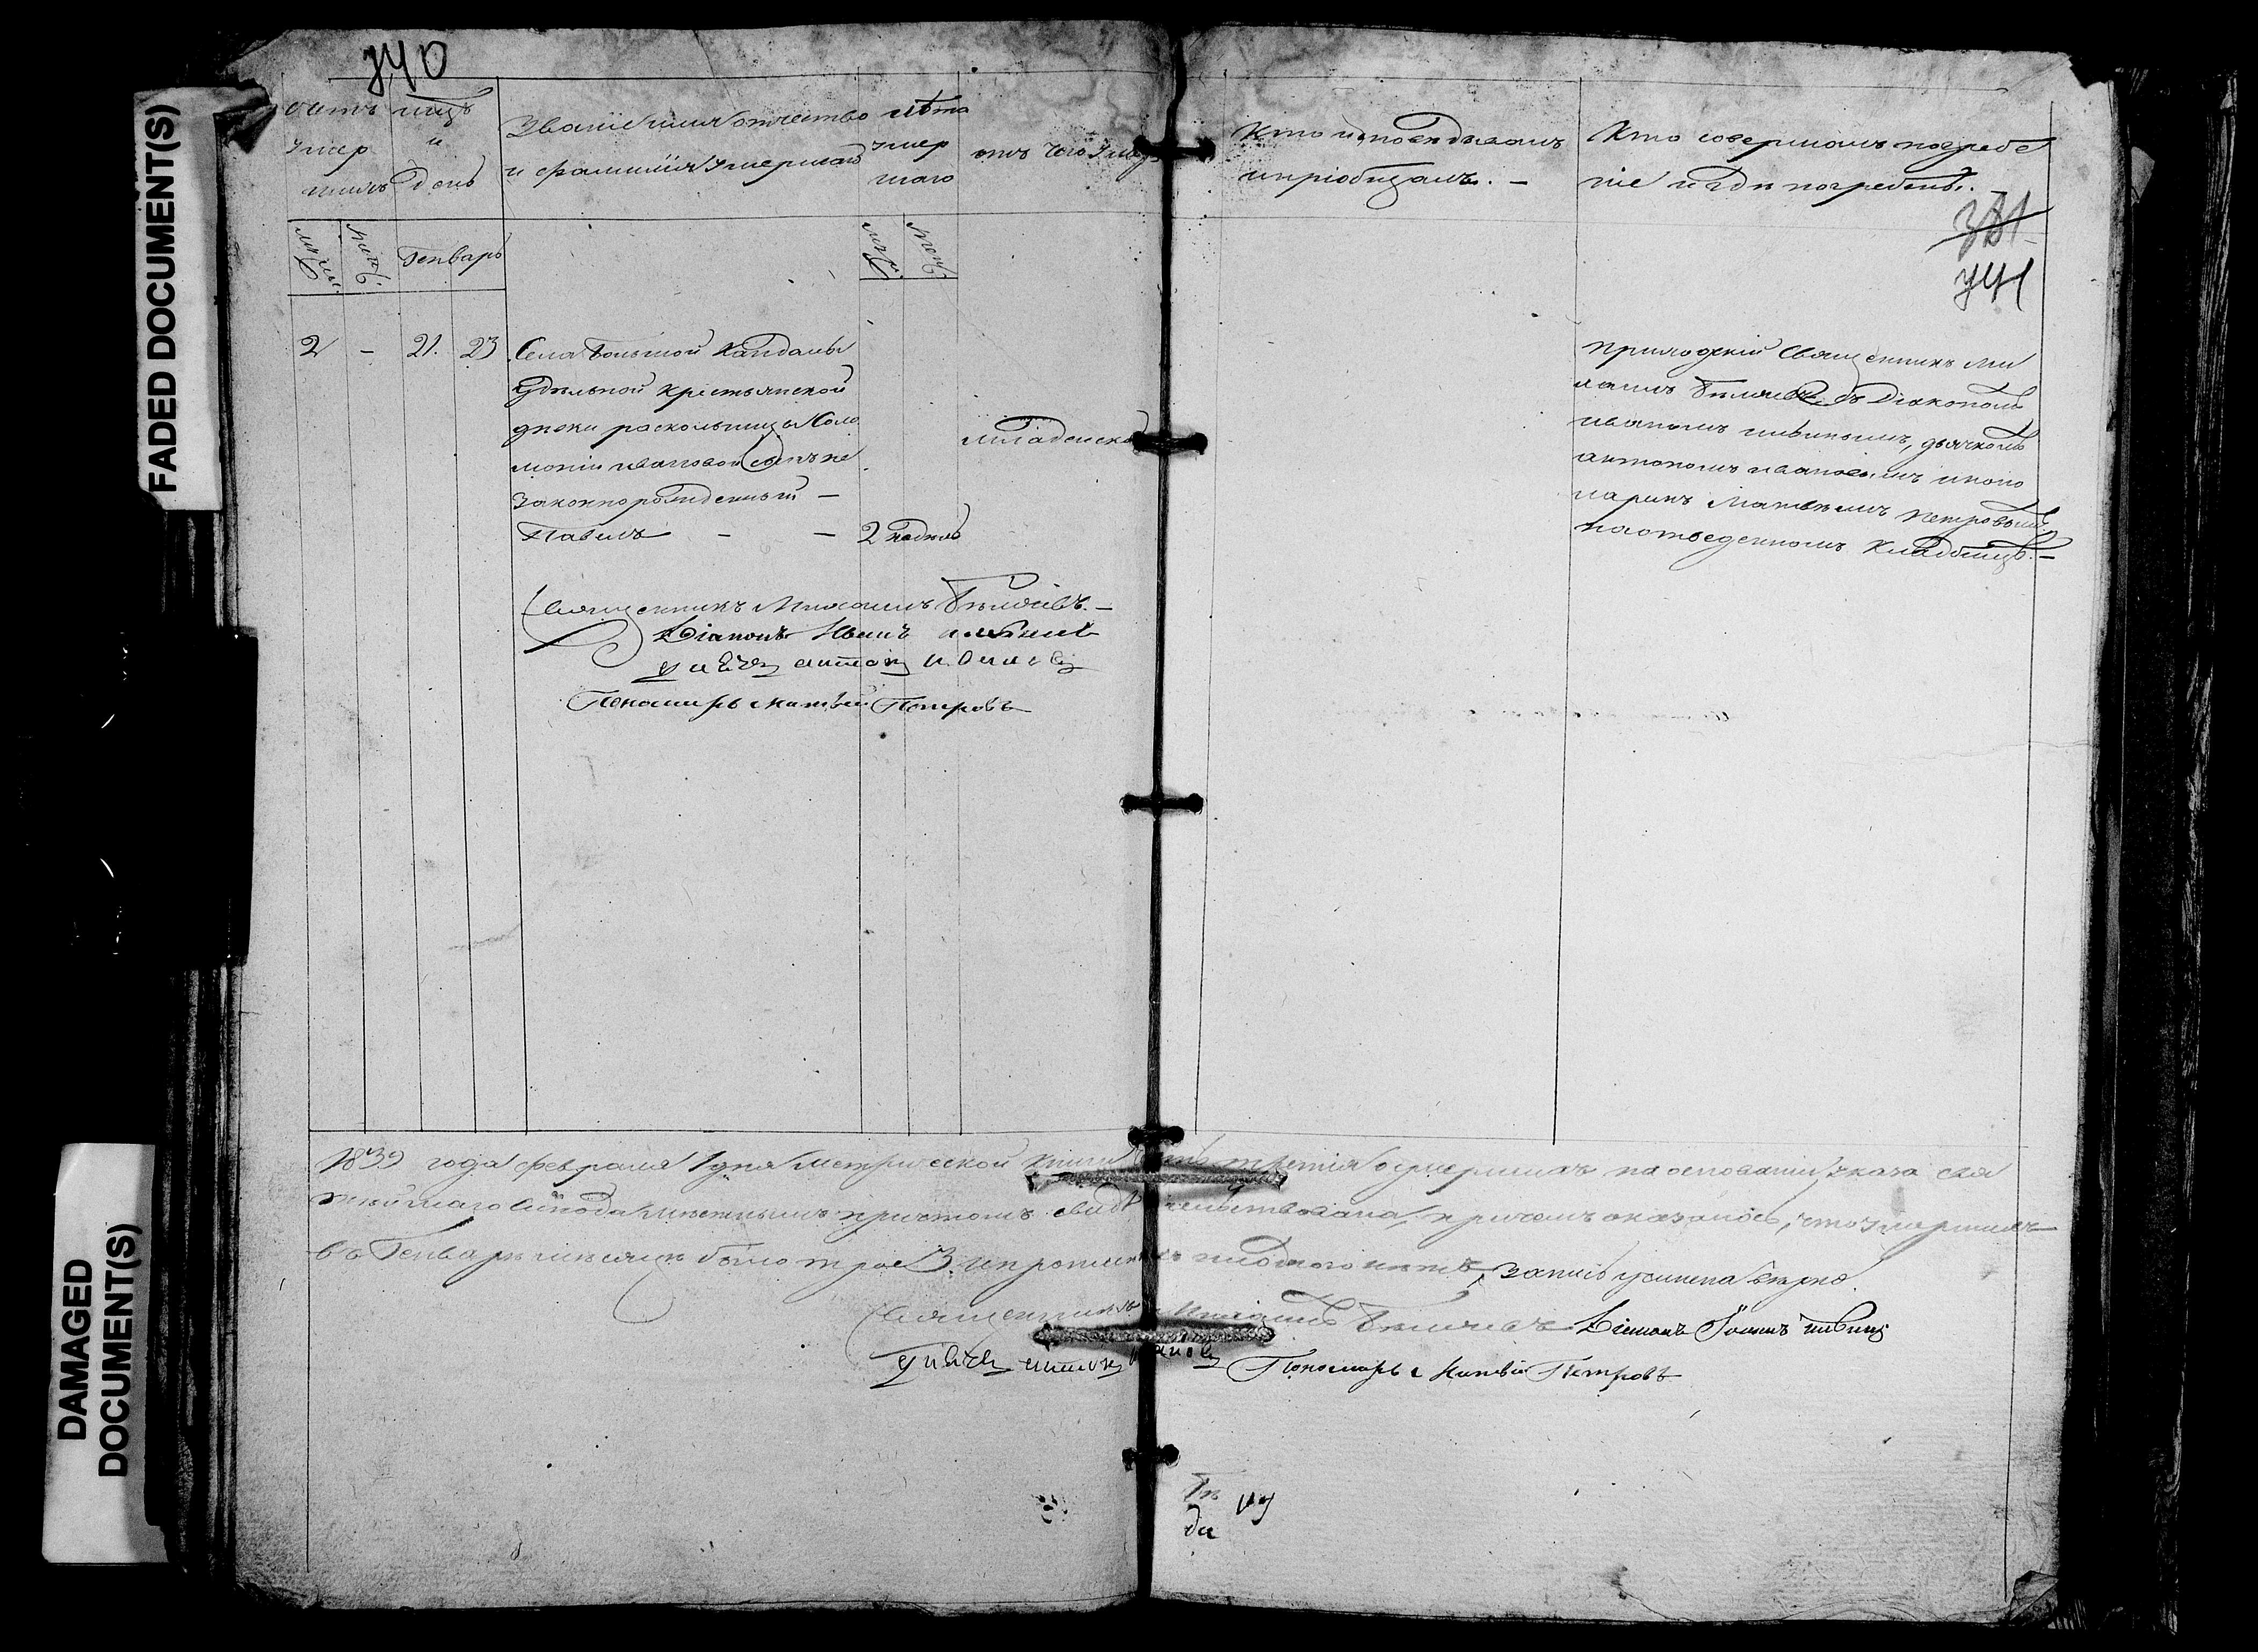 740
FADED DOCUMENT(S)
DAMAGED
DOCUMENT(S)
Счетъ мцъ
умер и
шихъ день
Званіе имя отчество
и фамилія умершаго
лѣта
умер
шаго
отъ чего умеръ
Кто исповѣдывалъ
и пріобщалъ. —
Кто совершалъ погребе
ніе и гдѣ погребены.
381
741
муж.
жен.
Генварь
муж.
жен.
2 — 21. 23
Села Большой Кандалы
удѣльной крестьянской
дѣвки раскольницы Соло
моніи Ивановой сынъ не
законнорожденный —
Павелъ — — 2 недѣль
младенск
Приходскій Священникъ Ми
хаилъ съ Діакономъ
Иваномъ Ливинымъ, дьячкомъ
Антономъ Ивановымъ и поно
маремъ Матвѣемъ Петровымъ
на отведенномъ Кладбищѣ. —
Священникъ Михаилъ
Діаконъ Иванъ
Дьячекъ Антонъ Ивановъ
Пономарь Матвѣй Петровъ
1839 года февраля 1 дня Метрической книги часть третія о умершихъ на основаніи указа Свя
тѣйшаго Сѵнода мѣстнымъ причтомъ свидѣтельствована, причемъ оказалось, что умершихъ
въ Генварѣ мѣсяцѣ было трое 3. и пропущеннаго ни одного нѣтъ, запись учинена вѣрно.
Священникъ Михаилъ Діаконъ Іоаннъ Ливинъ
Дьячекъ Антонъ Ивановъ Пономарь Матвѣй Петровъ